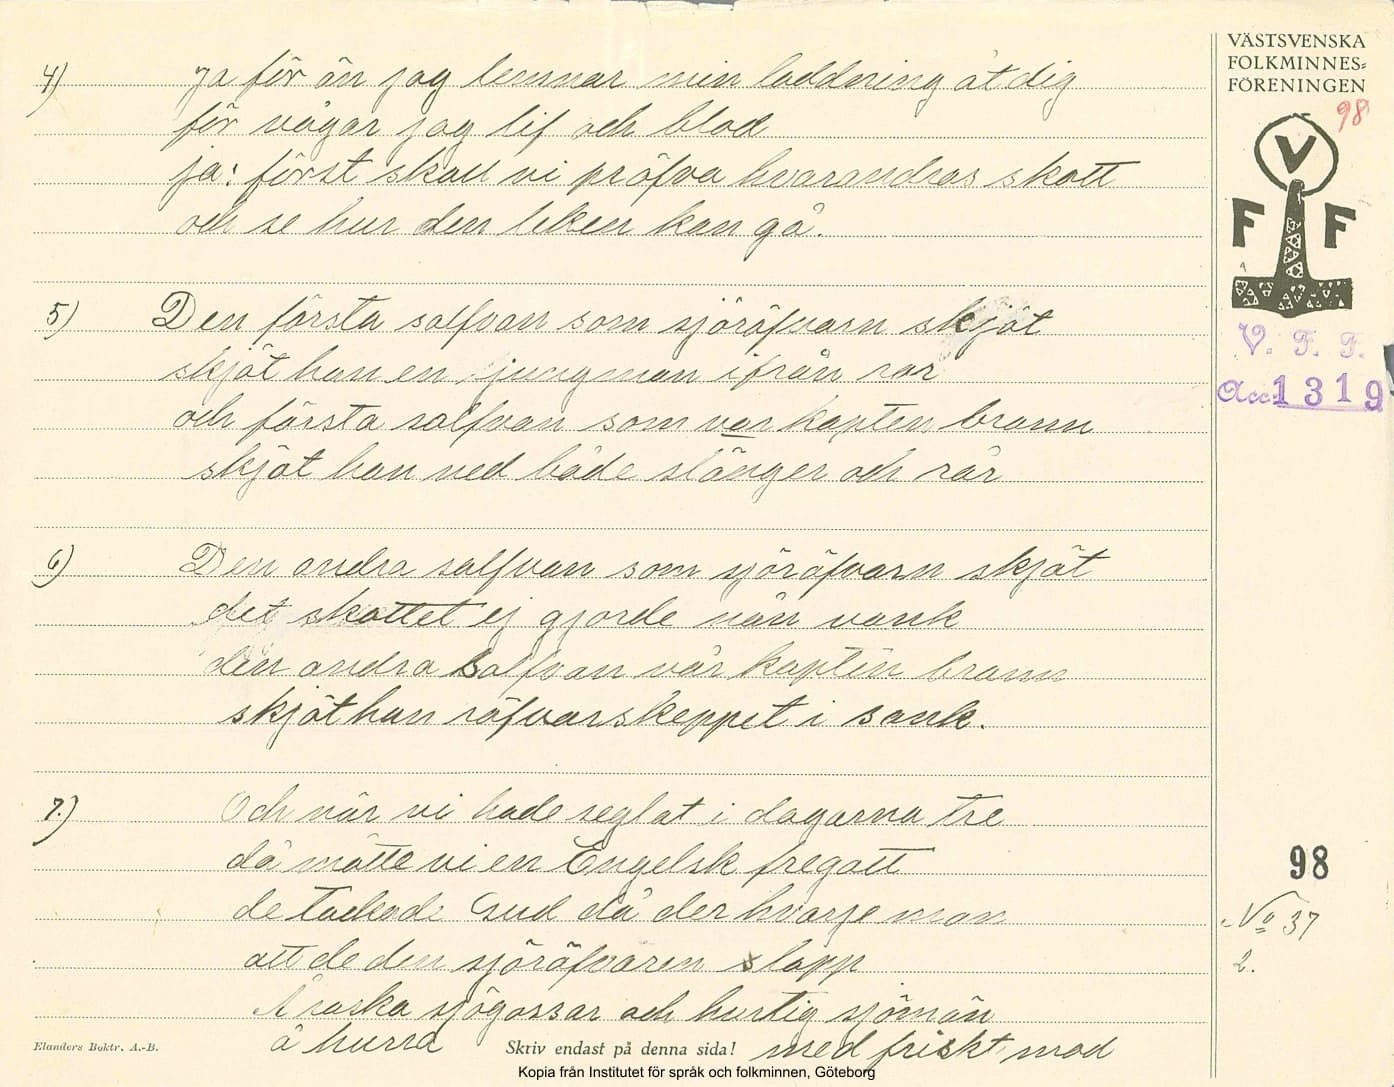 VÄSTSVENSKA
FOLKMINNES-
FÖRENINGEN
98
V
F F
V. F. F.
Acc. 1319
4) Ja för än jag lemnar min laddning åt dig
för vågar jag lif och blod
ja: först skall vi pröfva hvarandras skott
och se hur den leken kan gå.
5) Den första salfvan som sjöröfvarn skjöt
skjöt han en jungman ifrån ror
och första salfvan som var kapten brann
skjöt han ned både stänger och rår
6) Den andra salfvan som sjöröfvarn skjöt
det skottet ej gjorde nån vank
den andra salfvan vår kapten brann
skjöt han röfvarskeppet i sank.
7.) Och när vi hade seglat i dagarna tre
då mötte vi en Engelsk fregatt
de tackade Gud då der hvarje man
att de den sjöröfvaren slapp
Å raska sjögossar och hurtig sjömän
å hurra med friskt mod
98
No 37
2.
Elanders Boktr. A.-B.
Skriv endast på denna sida!
Kopia från Institutet för språk och folkminnen, Göteborg